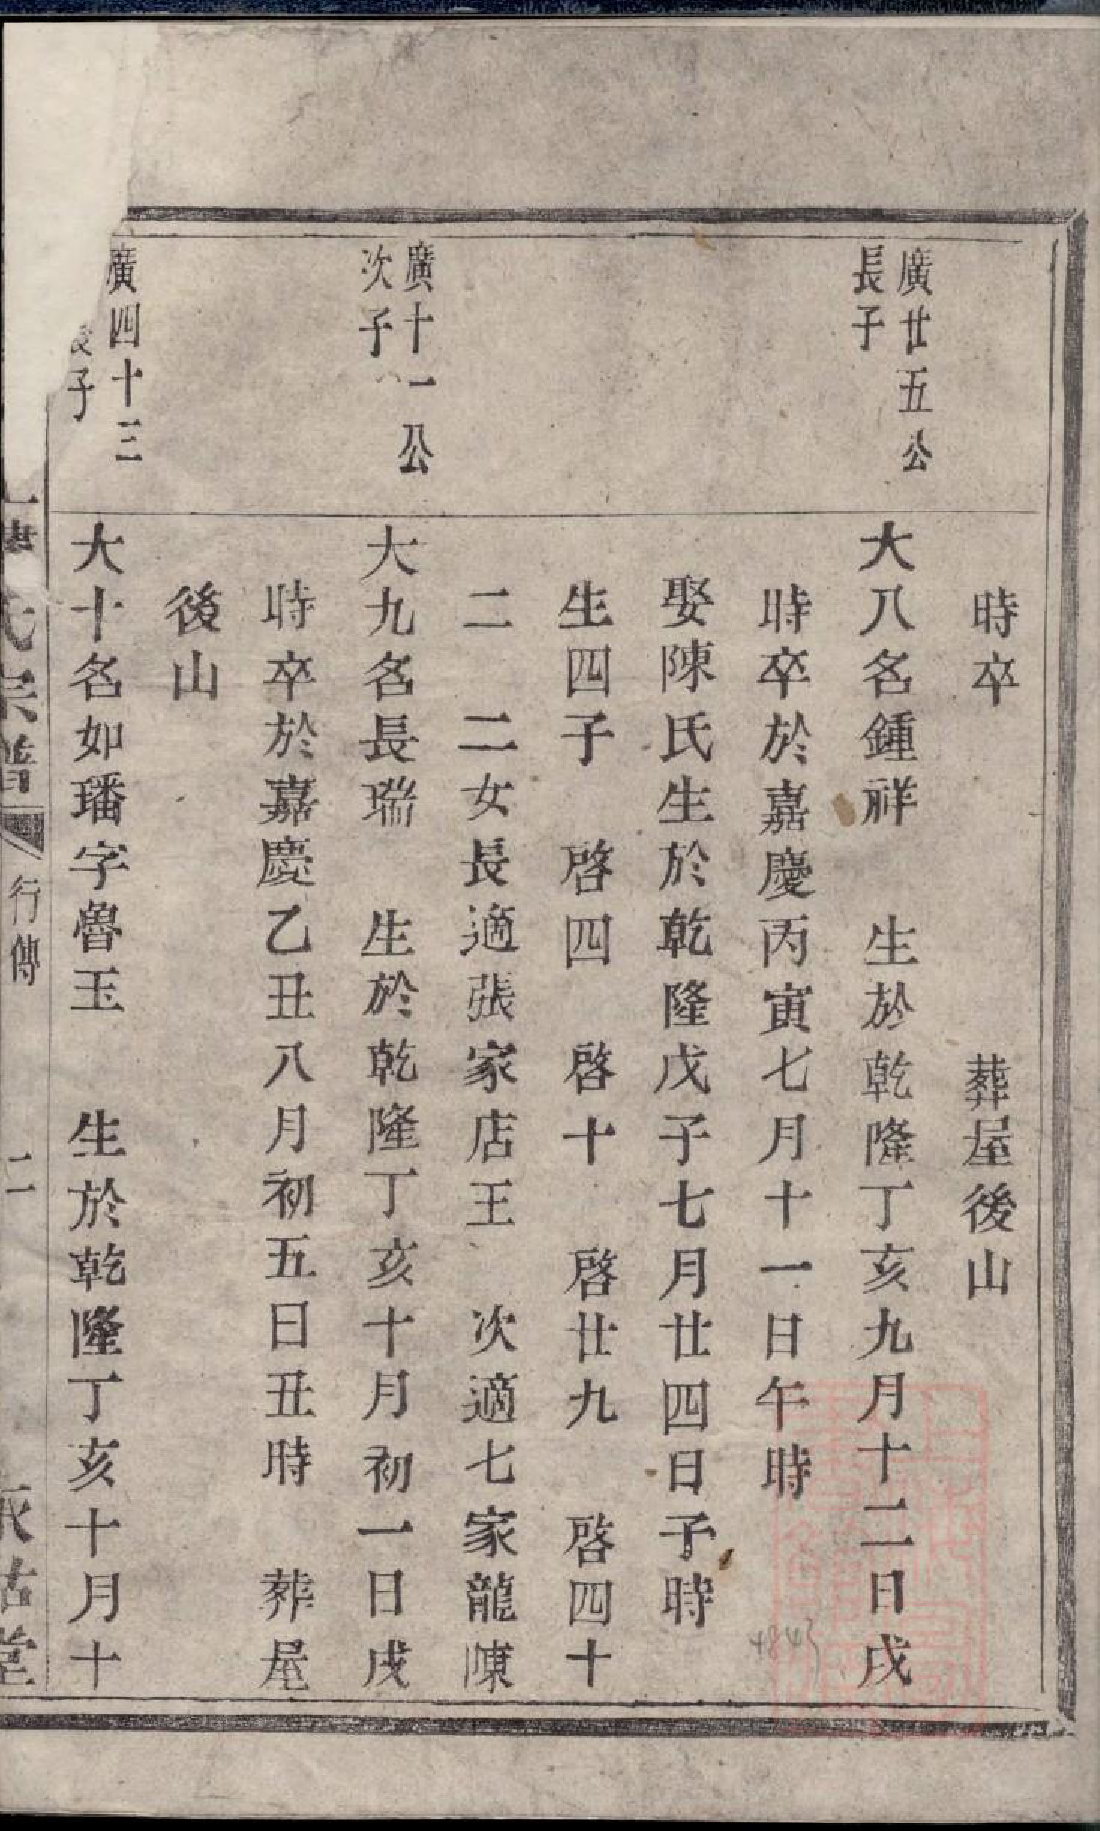 時卒　葬屋後山
廣廿五公
長子
大八名鍾祥　生於乾隆丁亥九月十二日戌
時卒於嘉慶丙寅七月十一日午時
娶陳氏生於乾隆戊子七月廿四日子時
生四子　啓四　啓十　啓廿九　啓四十
二　二女長適張家店王　次適七家龍陳
廣十一公
次子
大九名長瑞　生於乾隆丁亥十月初一日戌
時卒於嘉慶乙丑八月初五日丑時　葬屋
後山
廣四十三
長子
大十名如璠字魯玉　生於乾隆丁亥十月十
氏宗譜　行傳　二　堂
4843